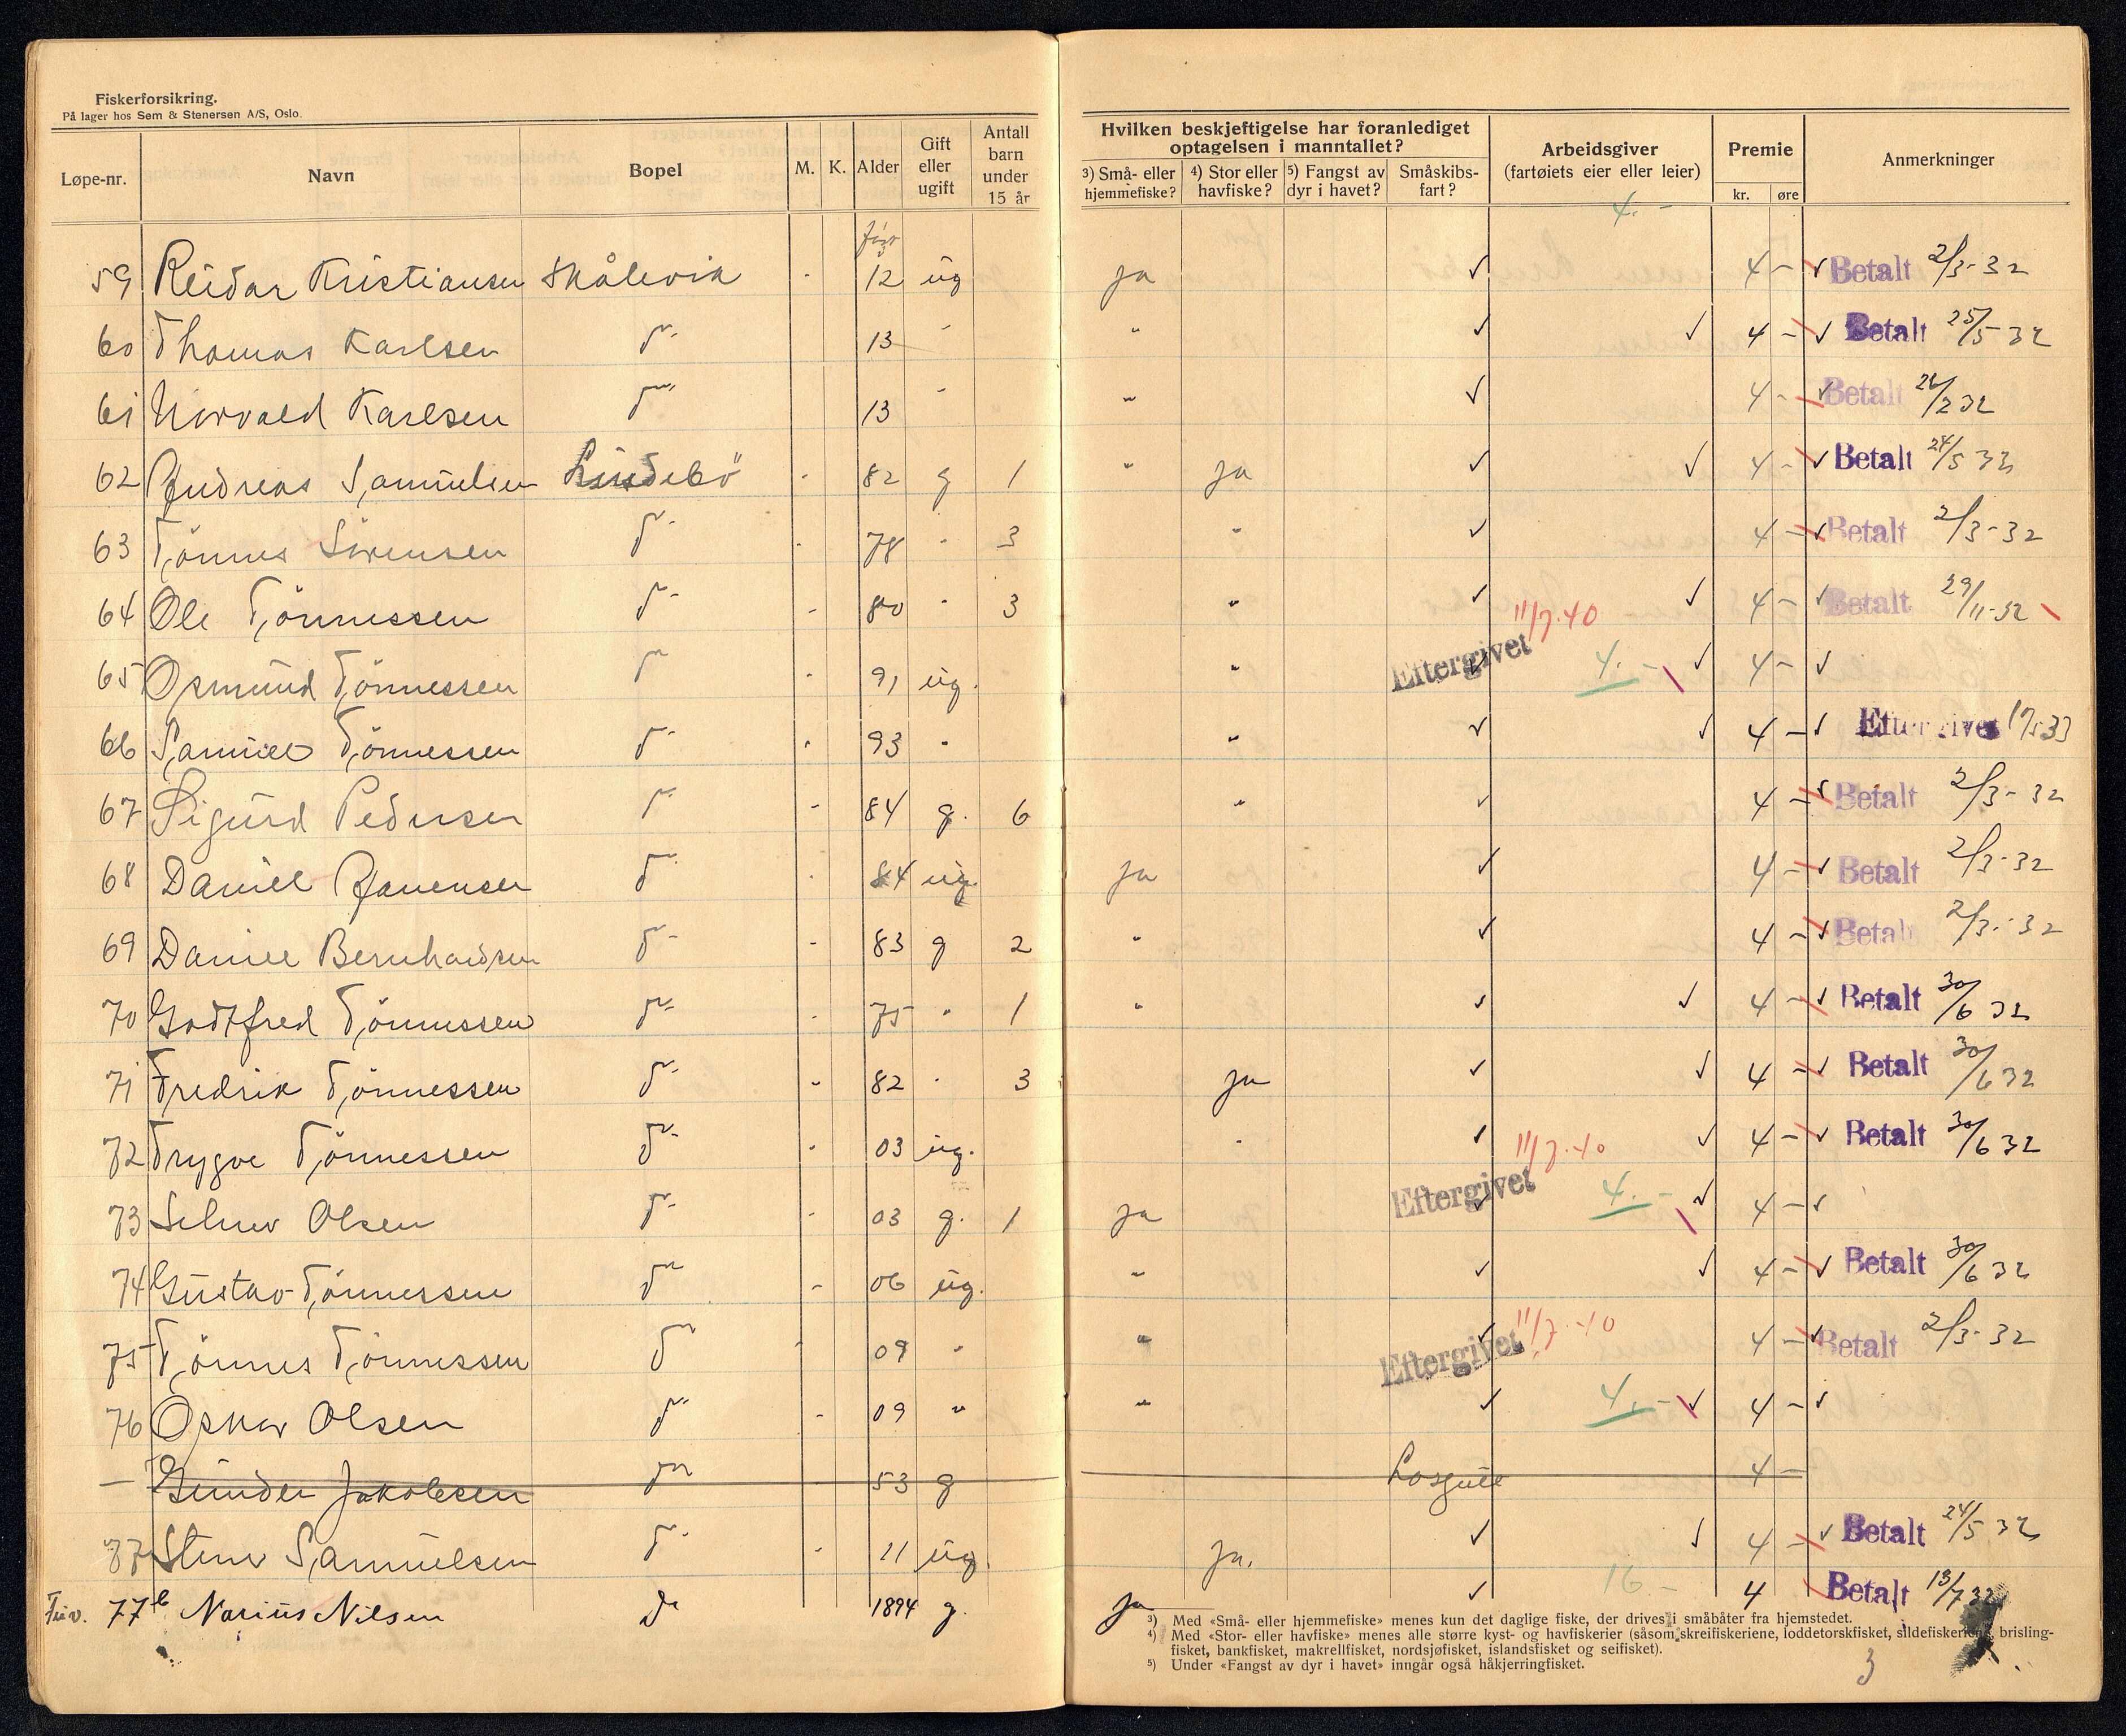 Fiskerforsikring.
På lager hos Sem & Stenersen A/S, Oslo.
Løpe-nr. Navn Bopel M. K. Alder Gift eller ugift Antall barn under 15 år Hvilken beskjeftigelse har foranlediget optagelsen i manntallet? ³) Små- eller hjemmefiske? ⁴) Stor eller havfiske? ⁵) Fangst av dyr i havet? Småskibs-fart? Arbeidsgiver (fartøiets eier eller leier) Premie kr. øre Anmerkninger
4. -
59 Reidar Kristiansen Skålevik - 12 ug ja ✓ 4 - ✓ Betalt 2/3-32
60 Thomas Karlsen do - 13 - " ✓ ✓ 4 - ✓ Betalt 25/5 32
61 Norvald Karlsen do - 13 - " ✓ 4 - ✓ Betalt 26/2 32
62 Andreas Samuelsen Lindebö - 82 g 1 " ja ✓ ✓ 4 - ✓ Betalt 24/5 32
63 Tönnes Sörensen do - 78 - 3 " ✓ 4 - Betalt 2/3-32
64 Ole Tönnessen do - 80 " 3 " ✓ ✓ 4 - ✓ Betalt 29/11-32
65 Osmund Tönnessen do - 91 ug. " ✓ Eftergivet 11/7.40 4. - ✓ 4 - ✓
66 Samuel Tönnessen do - 93 " " ✓ ✓ 4 - ✓ Eftergivet 17/5 33
67 Sigurd Pedersen do - 84 g. 6 " ✓ 4 - ✓ Betalt 2/3-32
68 Daniel Jauensen do - 84 ug. ja ✓ 4 - ✓ Betalt 2/3-32
69 Daniel Bernhardsen do - 83 g 2 " ✓ 4 - ✓ Betalt 2/3-32
70 Godtfred Tönnessen do - 75 " 1 " ✓ ✓ 4 - ✓ Betalt 30/6 32
71 Fredrik Tönnessen do - 82 " 3 ja ✓ ✓ 4 - ✓ Betalt 30/6 32
72 Trygve Tönnessen do - 03 ug. " ✓ ✓ 4 - ✓ Betalt 30/6 32
73 Selmer Olsen do - 03 g. 1 ja ✓ Eftergivet 11/7.40 4. - ✓ 4 - ✓
74 Gustav Tönnessen do - 06 ug. " ✓ ✓ 4 - ✓ Betalt 30/6 32
75 Tönnes Tönnessen do - 09 " " ✓ 4 - ✓ Betalt 2/3-32
76 Oskar Olsen do - 09 " " ✓ Eftergivet 11/7.40 4. - ✓ 4 - ✓
— Gunder Jakobsen do 53 g Losgutt 4 -
77 Stener Samuelsen do - 11 ug. ja. ✓ ✓ 4 - ✓ Betalt 24/5 32
16 -
77b Narius Nilsen do 1894 g. ja ✓ 4 Betalt 13/7 32
³) Med «Små- eller hjemmefiske» menes kun det daglige fiske, der drives i småbåter fra hjemstedet.
⁴) Med «Stor- eller havfiske» menes alle større kyst- og havfiskerier (såsom skreifiskeriene, loddetorskfisket, sildefiskeriene, brisling-
fisket, bankfisket, makrellfisket, nordsjøfisket, islandsfisket og seifisket).
⁵) Under «Fangst av dyr i havet» inngår også håkjerringfisket.
3